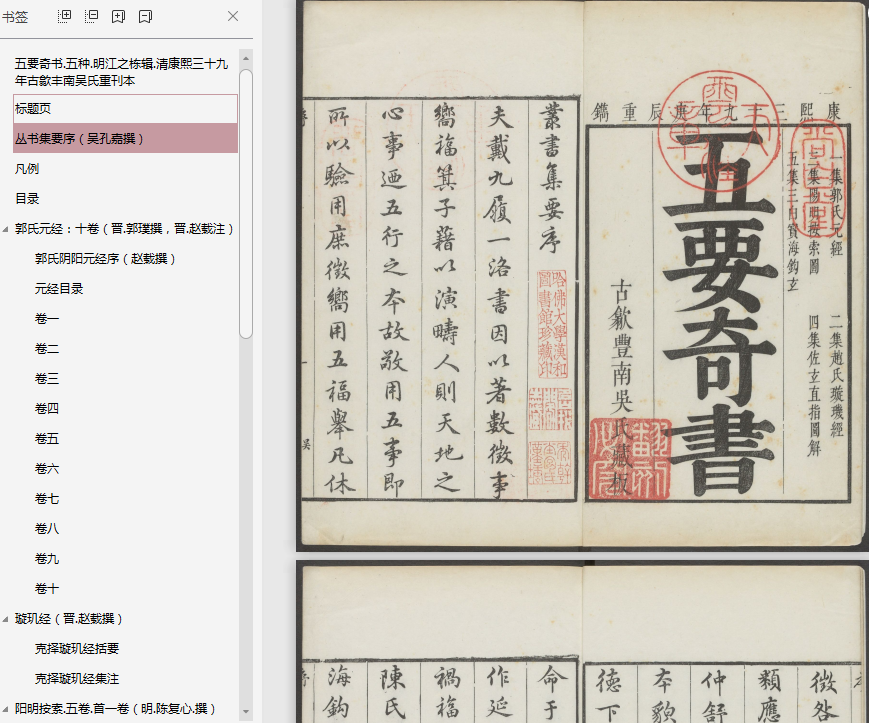 书签
五要奇书.五种.明江之栋辑.清康熙三十九
年古歙丰南吴氏重刊本
标题页
丛书集要序（吴孔嘉撰）
凡例
目录
郭氏元经：十卷（晋.郭璞撰，晋.赵载注）
郭氏阴阳元经序（赵载撰）
元经目录
卷一
卷二
卷三
卷四
卷五
卷六
卷七
卷八
卷九
卷十
璇玑经（晋.赵载撰）
克择璇玑经括要
克择璇玑经集注
阳明按索.五卷.首一卷（明.陈复心.撰）
康熙三十九年庚辰重鐫
一集郭氏元經
二集趙氏璇璣經
三集陽明按索圖
四集佐玄直指圖解
五集三白寶海鈎玄
五要奇書
古歙豐南吳氏藏板
叢書集要序
哈佛大學漢和
圖書館珍藏印
夫戴九履一洛書因以著數徵事
嚮福箕子藉以演疇人則天地之
心事迺五行之本故敬用五事即
所以驗用庶徵嚮用五福舉凡休
吳
徵咎
類應
仲舒
本貌
德下
命于
作延
禍福
陳氏
海鈎